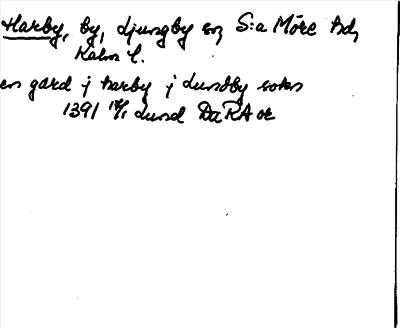 Harby, by, Ljungby sn, S:a Möre hd,
Kalm l.
en gard j harby j Liundby sokn
1391 14/1 Lund DaRA or